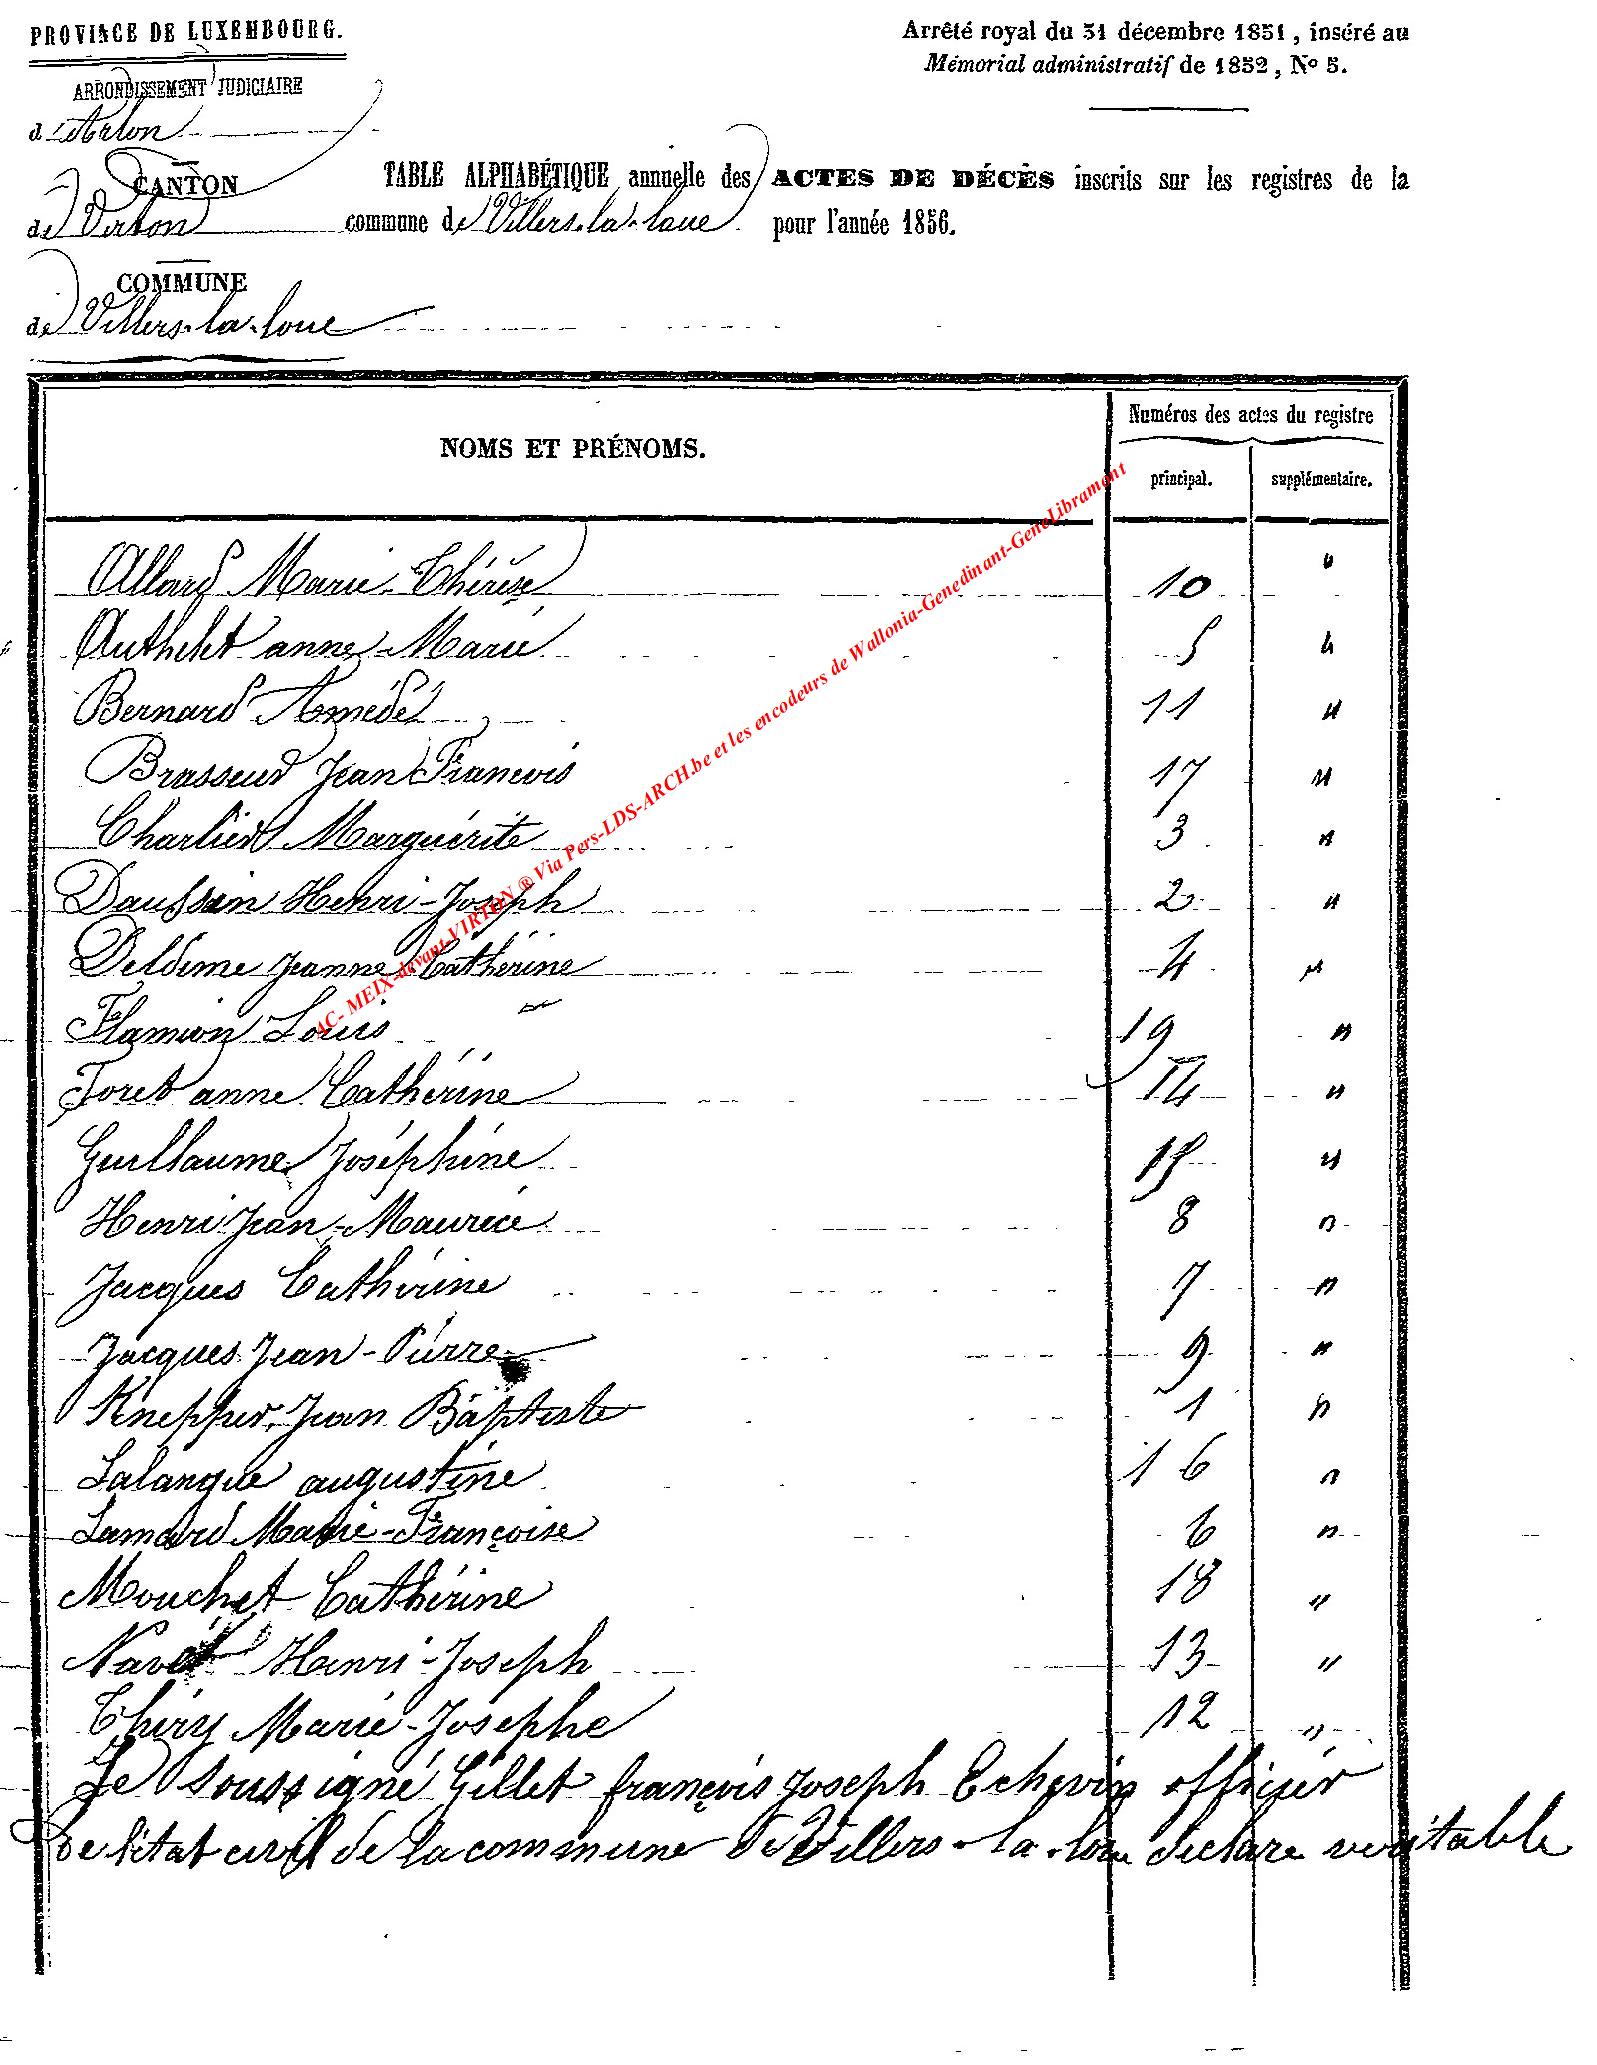 PROVINCE DE LUXEMBOURG.
Arrêté royal du 31 décembre 1851, inséré au
Mémorial administratif de 1852, No 5.
ARRONDISSEMENT JUDICIAIRE
d'Arlon
CANTON
de Virton
TABLE ALPHABÉTIQUE annuelle des ACTES DE DÉCÈS inscrits sur les registres de la
commune de Villers-la-loue pour l'année 1856.
COMMUNE
de Villers-la-loue
NOMS ET PRÉNOMS.
Numéros des actes du registre
principal. supplémentaire.
Allard Marie-Thérèse 10 "
Authelet anne-Marie 5 "
Bernard Amédé 11 "
Brasseur Jean François 17 "
Charlier Marguérite 3 "
Daussin Henri-Joseph 2 "
Deldime Jeanne Cathérine 4 "
Flamion Louis 19 "
Foret anne Cathérine 14 "
Guillaume Joséphine 15 "
Henri Jean-Maurice 8 "
Jacques Cathérine 7 "
Jacques Jean-Pierre 9 "
Knepper Jean Baptiste 1 "
Lalangue augustine 16 "
Lamard Marie-Françoise 6 "
Mouchet Cathérine 18 "
Navet Henri-Joseph 13 "
Thiry Marie-Josephe 12 "
Je soussigné Gillet françois Joseph Echevin officier
de l'état civil de la commune de Villers-la-loue déclare veritable
AC- MEIX-devant-VIRTON ® Via Pers-LDS-ARCH.be et les encodeurs de Wallonia-Genedinant-GeneLibramont